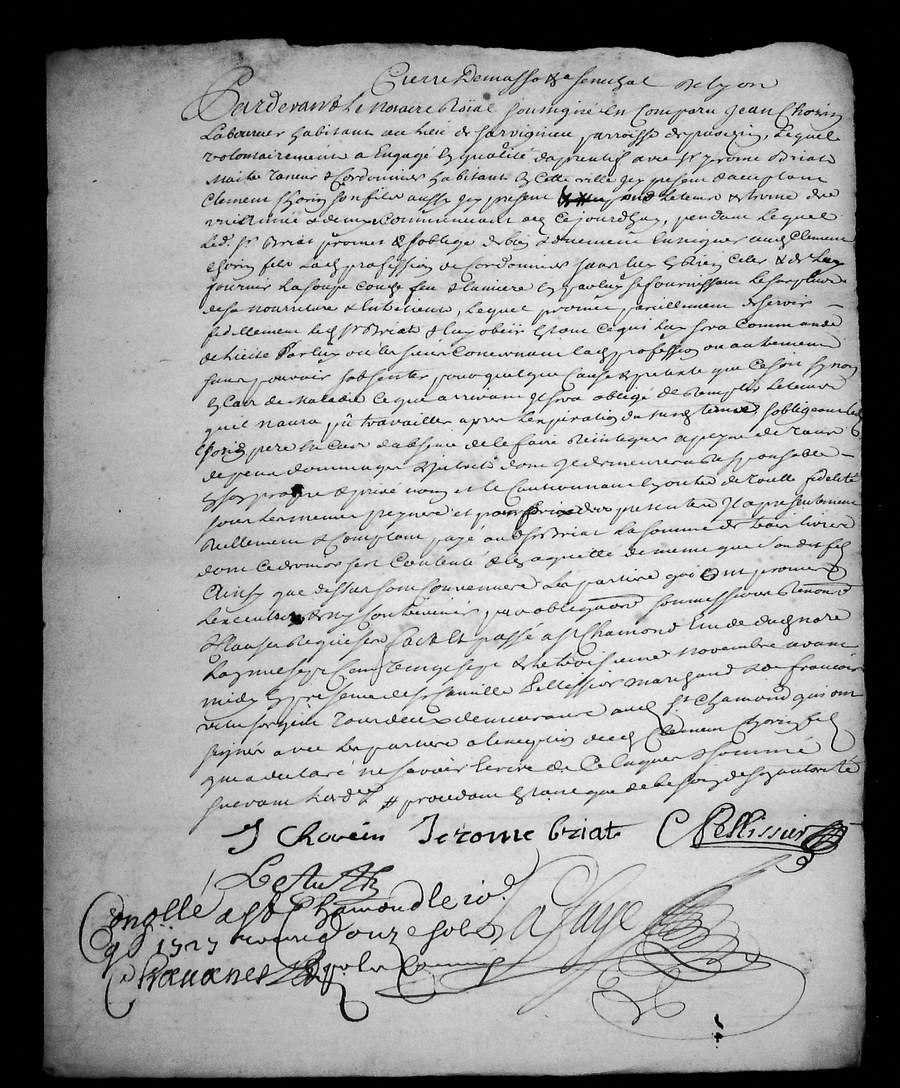 Pierre Demasso & senechal de lyon
Pardevant Le Notaire Roial soussigné En Comparu Jean Chorin
Laboureur habitant au lieu de parroisse de Lequel
volontairement a Engagé En qualité daprentif avec Sr jerome Briat
Maitre Taneur & Cordonnier habitant En Cette ville Jcy present & acceptant
Clement Chorin son fils aussy Jcy present pend Le temps & terme de
& demy Commencant cejourdhuy, pendant Lequel
Led. Sr Briat promet & soblige de bien & duement Enseigner aud Clement
Chorin fils Lad profession de Cordonnier sans luy En rien Celer & de Luy
fournir La soupe Couche feu & lumiere Le surplus
de sa nourriture & Entretien, Lequel promet pareillement de servir
fidellement led Sr Briat & luy obeir En tout Ce qui Luy sera Commandé
de Licite Par luy ou les siens Concernant lad profession ou autrement
sans pouvoir sabsenter pour quelque Cause & pretexte que Ce soit sy non
En Cas de Maladie Ce que arrivant Jl sera obligé de Remplir Le temps
quil naura pû travailler apres Lexpiration du susd terme sobligeant led
Chorin pere En Cas dabsence de le faire Reintegrer a peyne de tous
depens dommages & Jnterets dont Jl demeurera Responsable
En son propre & privé nom et le Cautionnant En outre de toutte fidelité
sous Les memes peynes et pour prix des presentes Jl a presentement
Reellement & Comptant payé aud Sr Briat La somme de trois livres
dont Ce dernier sest Contenté & La quitte de meme que sondit fils
Ainsy que dessus sont Convenus Les parties qui Ont promis
Lexecuter & ny Contrevenir par obligaons soumissions Renonons
& Clauses Requises fait Et passé a St Chamond Etude du Notre
Lan mil sept Cent vingt sept & le troisieme novembre avant
midy En presence de Sr Camille Pellissier Marchand & de francois
tous deux demeurants aud St Chamond qui ont
signés avec Les parties a lexeption dud Clement Chorin fils
qui a declaré ne scavoir Ecrire de Ce Enquis & sommé
suivant Lord # procedant En tant que de besoin de son autorité
J Chorein Jerome briat C Pellissier

Conollé a St Chamond le 10e
9b 1727 Receu Douze sols Lafaye